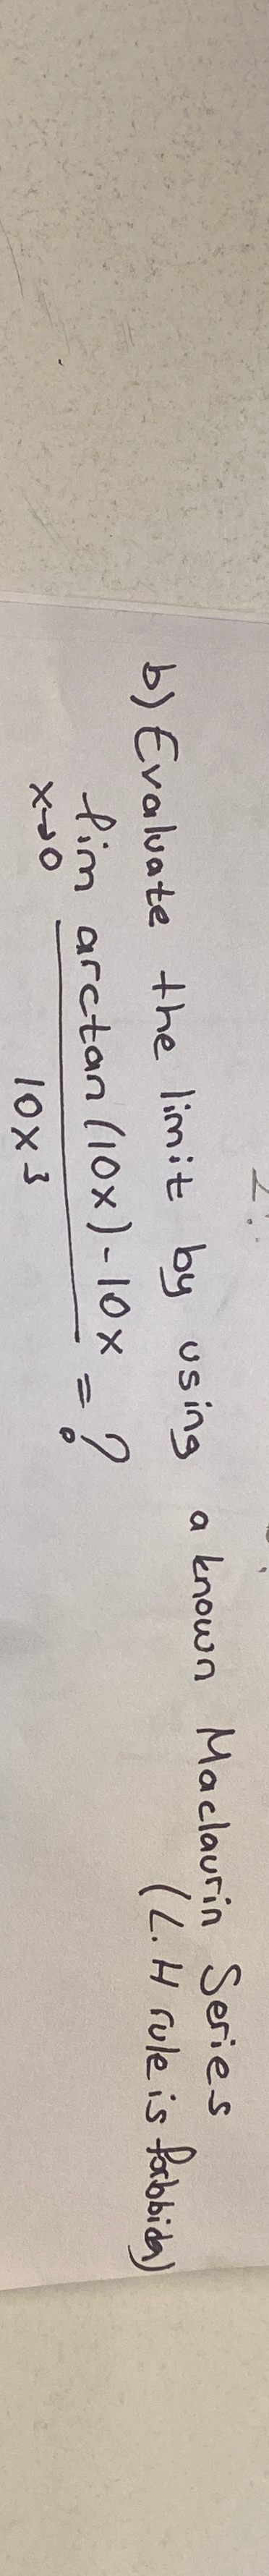 b) Evaluate the limit by using a known Maclaurin Series
(L.H rule is forbbidn)
lim arctan(10x)-10x = ?
x→0 10x³